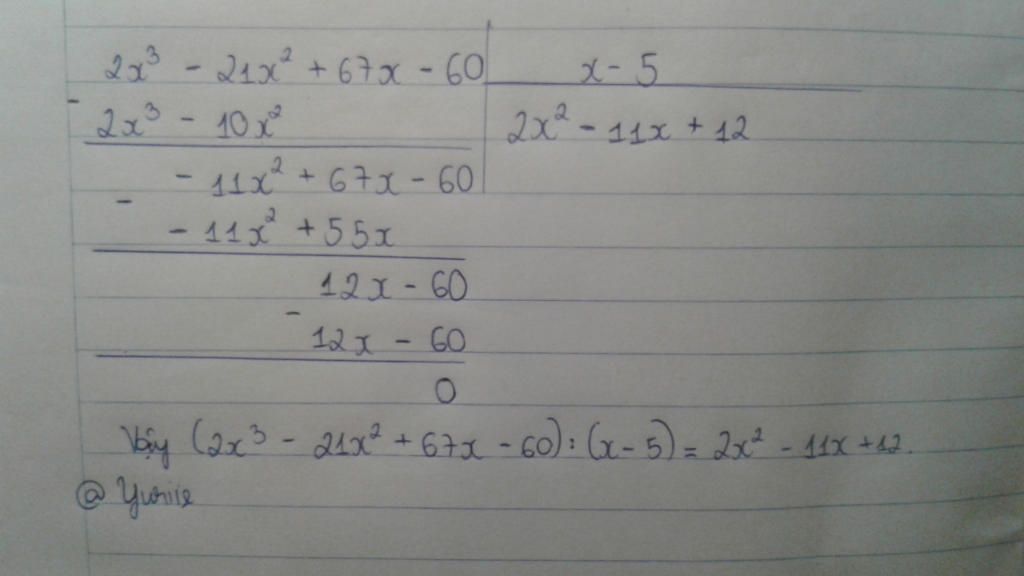 2x³ - 21x² + 67x - 60 x - 5
- 2x³ - 10x² 2x² - 11x + 12
- 11x² + 67x - 60
- - 11x² + 55x
12x - 60
- 12x - 60
0
Vậy (2x³ - 21x² + 67x - 60) : (x - 5) = 2x² - 11x + 12.
@ Yuriie